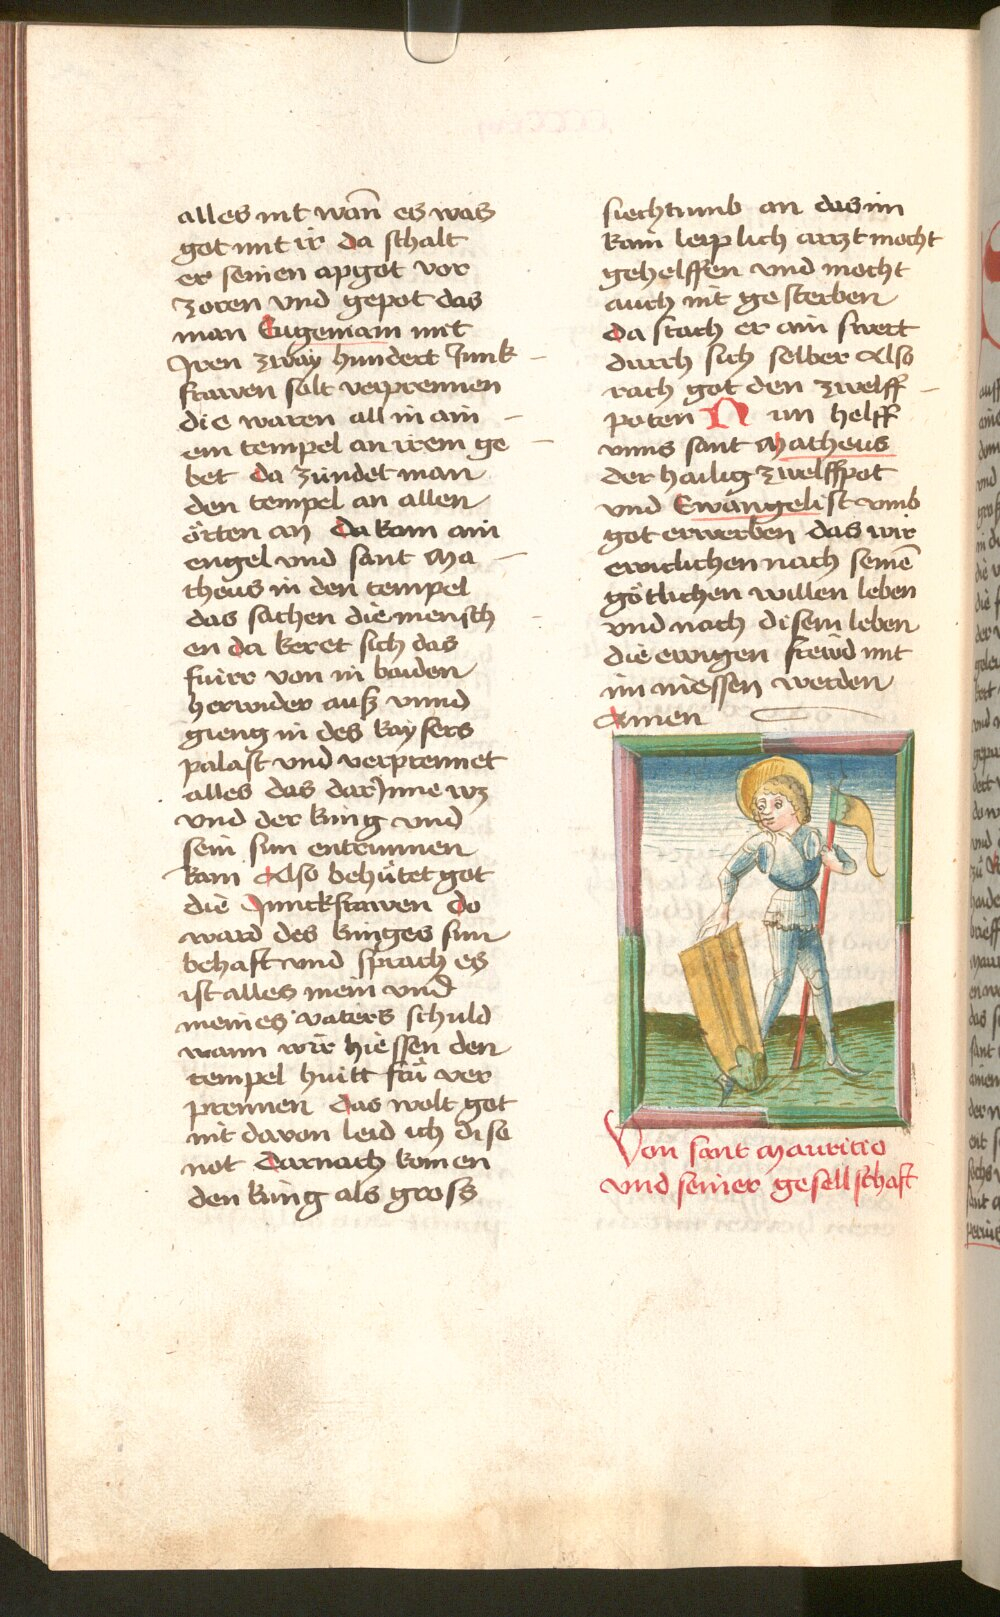 alles nit wan̄ es was
got mit ir da schalt
er seinen apgot vor
zoren vnd gepot das
man Eugeniam mit
Iren zway hundert Junk
frawen solt verprennen
die waren all in ain
em tempel an irem ge
bet da zündet man
den tempel an allen
örten an da kom ain
engel vnd sant Ma
theus in den tempel
das sachen die mensch
en da keret sich das
fuirr von in baiden
herwider auß vnnd
gieng in des kaysers
palast vnd verprennet
alles das darJnne wz
vnd der king vnd
sein sun entrunnen
kam Also behütet got
die Junckfrawen Do
ward des kinges sun
behaft vnd sprach es
ist alles mein vnd
meines vaters schuld
wann wir hiessen den
tempel huitt frü ver
prennen das wolt got
nit davon leid ich dise
not Darnach komen
den king als gross
siechtumb an das im
kain leiplich arczt mocht
gehelffen vnd mocht
auch nit gesterben
da stach er ain swert
durch sich selber Also
rach got den zwelff
poten Nun helff
vnns sant Matheus
der hailig zwelffpot
vnd Ewangelist vmb
got erwerben das wir
ewiclichen nach seinē
götlichen willen leben
vnd nach disem leben
die ewigen frewd mit
im niessen werden
Amen
Von sant Mauritio
vnd seiner gesellschaft